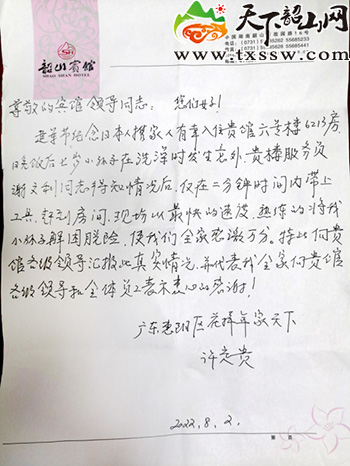 天下韶山网
www.txssw.com
韶山宾馆
SHAO SHAN HOTEL
尊敬的宾馆领导同志: 您们好!
建军节纪念日本人携家人有幸入住贵馆六号楼6213房
晚饭后七岁小孙子在洗澡时发生意外,贵楼服务员
谢文利同志得知情况后,仅在二分钟时间内带上
工具,赶到房间,现场以最快的速度,熟练的将我
小孙子解困脱险,使我们全家感激万分。特此向贵
馆各级领导汇报此真实情况,并代表我全家向贵馆
各级领导和全体员工表示衷心的感谢!
广东惠阳区花样年家天下
许定贵
2022.8.2.
第 页